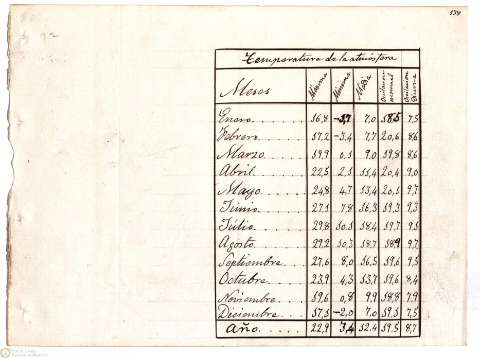 139
Temperatura de la atmósfera
Meses Máxima Mínima Media Oscilación mensual Oscilación diurna
Enero 16,8 7,0 18,5 7,5
Febrero 17,2 -3,4 7,7 20,6 8,6
Marzo 19,9 0,1 9,0 19,8 8,6
Abril 22,5 2,1 11,4 20,4 9,0
Mayo 24,8 4,7 13,4 20,1 9,7
Júnio 27,1 7,8 16,3 19,3 9,3
Júlio 29,8 10,1 18,4 19,7 9,5
Agosto 29,2 10,3 18,7 18,9 9,7
Septiembre 27,6 8,0 16,5 19,6 9,5
Octubre 23,9 4,3 13,7 19,6 8,4
Noviembre 19,6 0,8 9,9 18,8 7,9
Diciembre 17,5 -2,0 7,0 19,5 7,5
Año 22,9 3,4 12.4 19,5 8,7